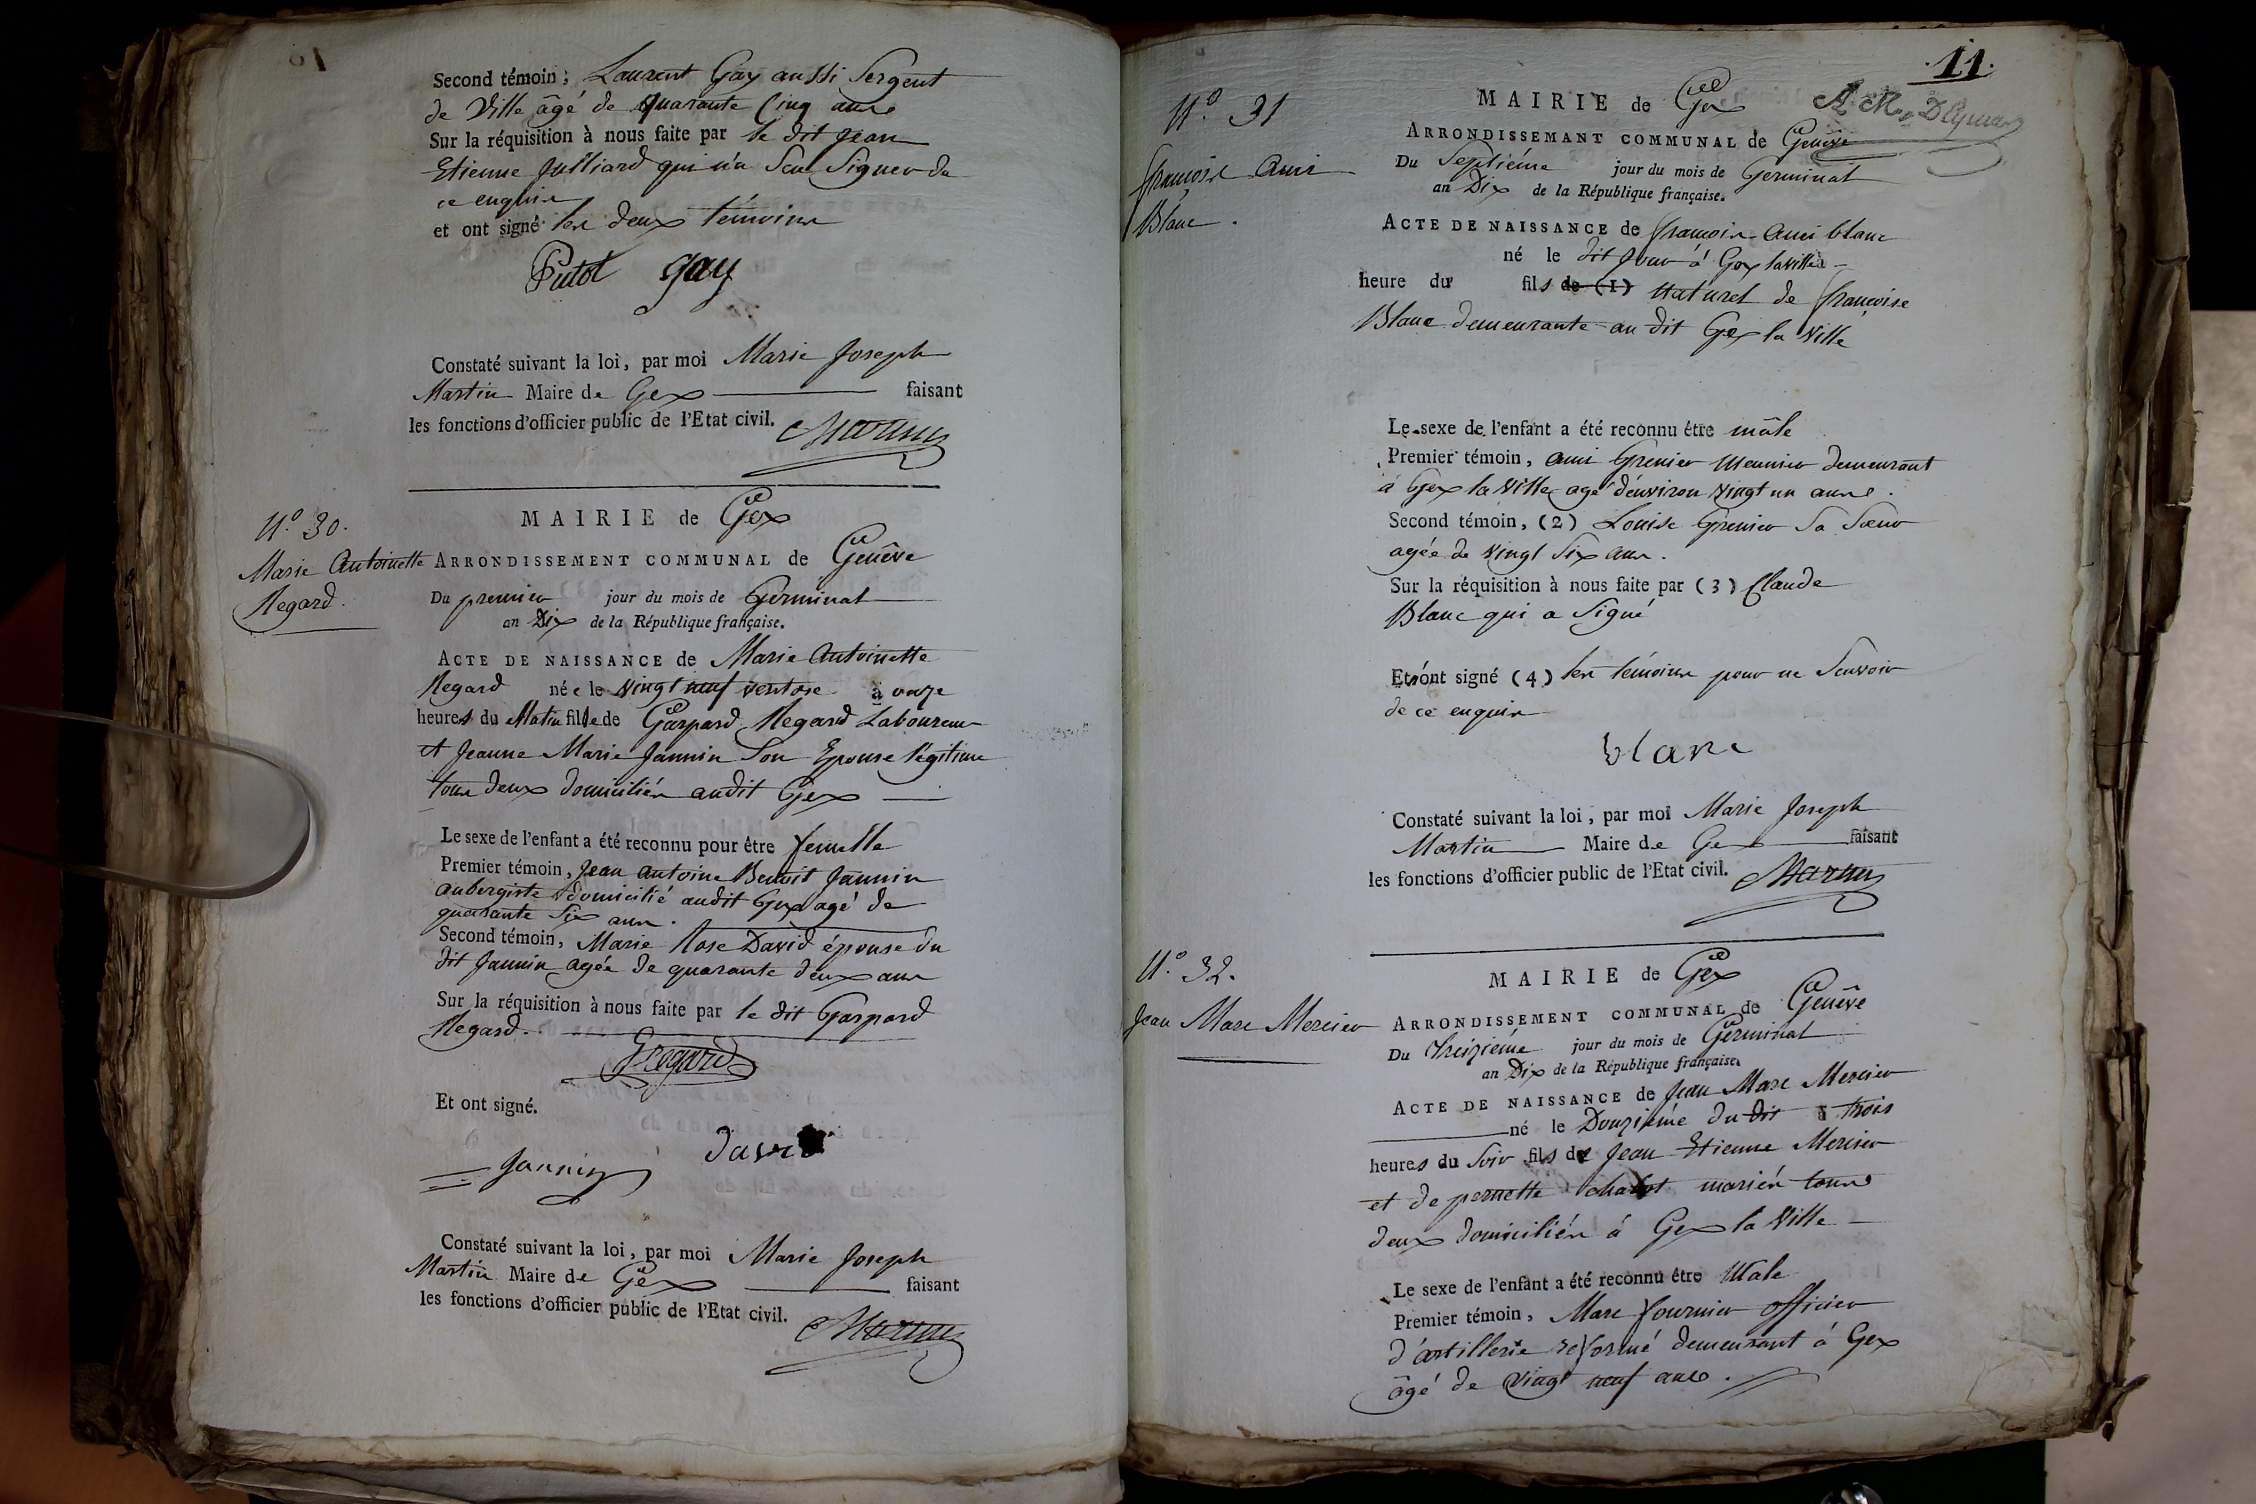 Second témoin ; Laurent Gay aussi Sergent
de Ville âgé de Quarante Cinq ans
Sur la réquisition à nous faite par le dit jean
Etienne Julliard qui n'a Seu Signer de
ce enquis
et ont signé les deux témoins
Putot Gay
Constaté suivant la loi, par moi Marie Joseph
Martin Maire de Gex faisant
les fonctions d'officier public de l'Etat civil. Martin
N.º 30.
Marie Antoinette
Regard.
MAIRIE de Gex
ARRONDISSEMENT COMMUNAL de Genêve
Du premier jour du mois de Germinal
an Dix de la République française.
ACTE DE NAISSANCE de Marie Antoinette
Regard née le vingt neuf ventose à onze
heures du Matin fille de Gaspard Regard Laboureur
et Jeanne Marie Jannin Son Epouse légitime
tous deux domiciliés audit Gex
Le sexe de l'enfant a été reconnu pour être femelle
Premier témoin, Jean antoine Benoit Jannin
aubergiste domicilié audit Gex agé de
quarante Six ans.
Second témoin, Marie Rose David épouse du
dit Jannin agée de quarante deux ans
Sur la réquisition à nous faite par le dit Gaspard
Regard.
G regard
Et ont signé.
Jannin david
Constaté suivant la loi, par moi Marie Joseph
Martin Maire de Gex faisant
les fonctions d'officier public de l'Etat civil. Martin
11.
N.º 31
françois Ami
Blanc.
MAIRIE de Gex
ARRONDISSEMANT COMMUNAL de Genêve
Du Septiéme jour du mois de Germinal
an Dix de la République française.
ACTE DE NAISSANCE de françois Ami blanc
né le dit jour à Gex la ville à
heure du fils de (1) naturel de françoise
Blanc demeurante au dit Gex la Ville
Le sexe de l'enfant a été reconnu être mâle
Premier témoin, ami Grenier Meunier demeurant
à Gex la Ville agé d'environ vingt un ans.
Second témoin, (2) Louise Grenier Sa Sœur
agée de vingt Six ans.
Sur la réquisition à nous faite par (3) Claude
Blanc qui a Signé
Et ont signé (4) les témoins pour ne Scavoir
de ce enquis
blanc
Constaté suivant la loi, par moi Marie Joseph
Martin Maire de Gex faisant
les fonctions d'officier public de l'Etat civil. Martin
N.º 32.
Jean Marc Mercier
MAIRIE de Gex
ARRONDISSEMENT COMMUNAL de Genêve
Du treiziéme jour du mois de Germinal
an Dix de la République française.
ACTE DE NAISSANCE de Jean Marc Mercier
né le Douziéme du dit à trois
heures du Soir fils de Jean Etienne Mercier
et de pernette mariés tous
deux domiciliés à Gex la Ville
Le sexe de l'enfant a été reconnu étre Male
Premier témoin, Marc fournier officier
d'artillerie reformé demeurant à Gex
âgé de vingt neuf ans.